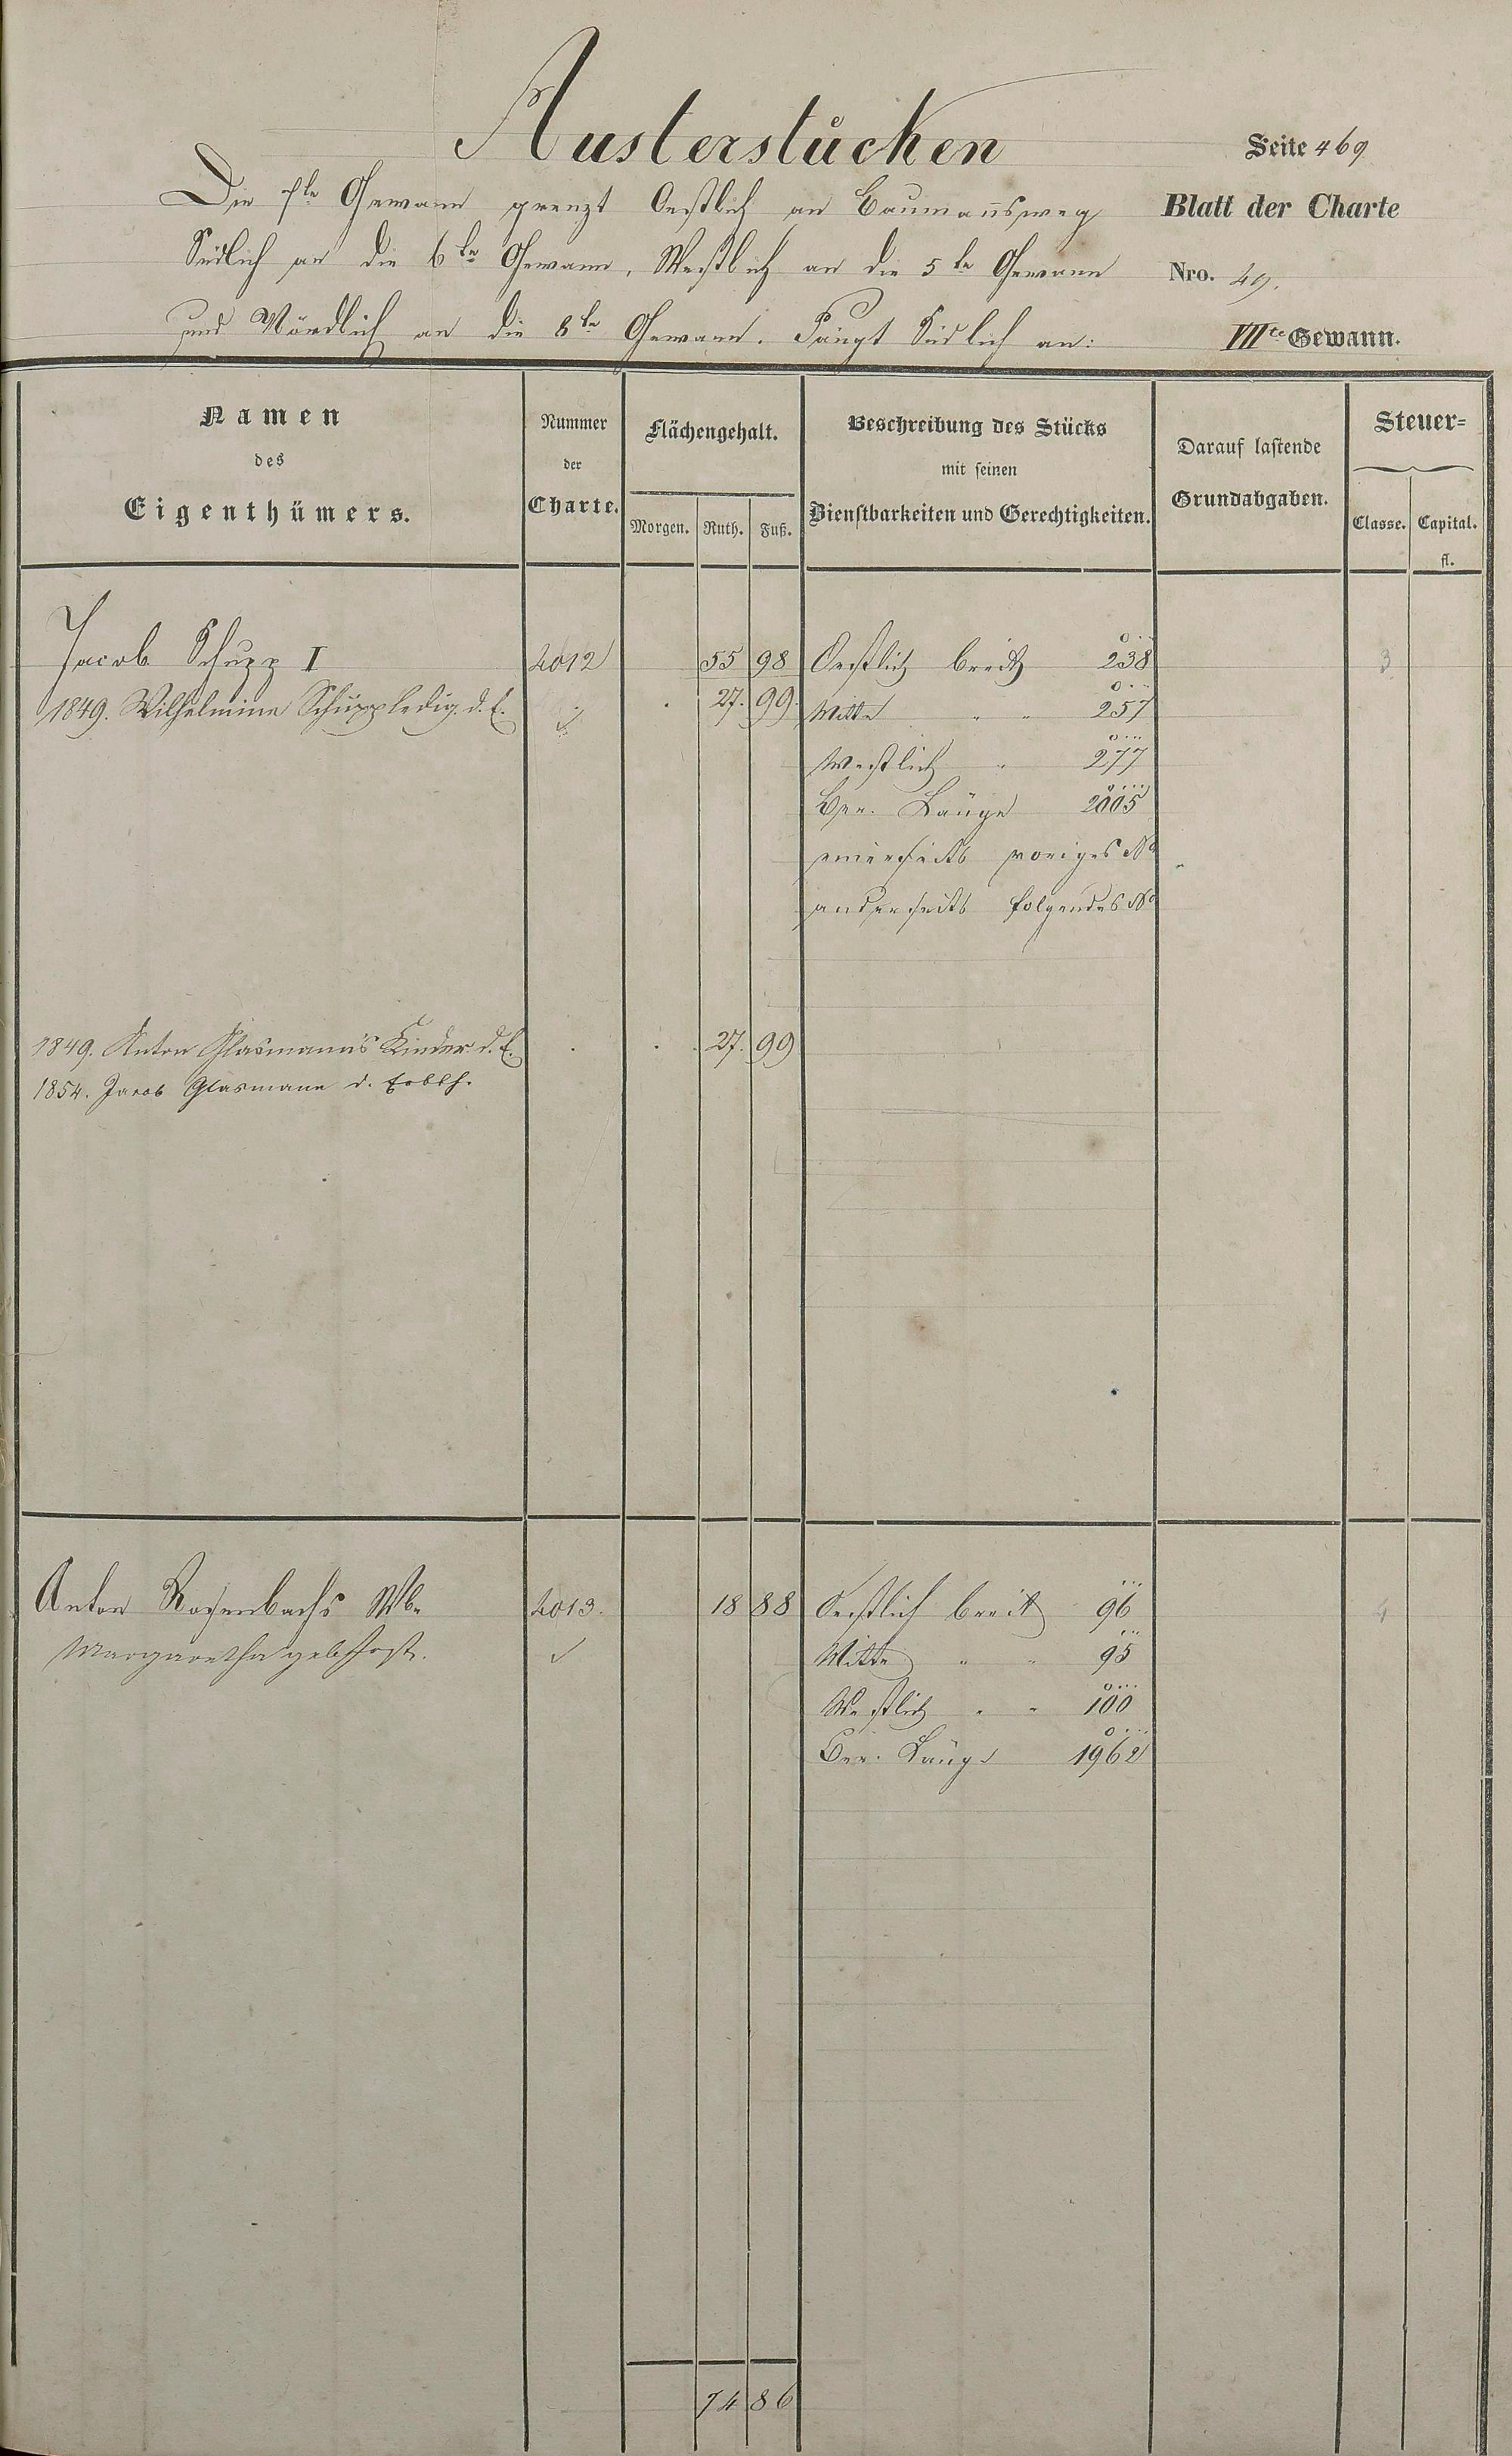 Austerstücken
Seite 469
Die 7te Gewann grenzt Oestlich an Baumannsweg
Blatt der Charte
Südlich an die 6te Gewann, Westlich an die 5te Gewann
Nro. 49.
und Nördlich an die 8te Gewann. Fängt Südlich an:
VIIte Gewann.
Namen
des
Eigenthümers.
Nummer
der
Charte.
Flächengehalt.
Morgen. Ruth. Fuß.
Beschreibung des Stücks
mit seinen
Dienstbarkeiten und Gerechtigkeiten.
Darauf lastende
Grundabgaben.
Steuer=
Classe. Capital.
fl.
Jacob Schupp I 4012 55 98 Oestlich breit 238 3
1849. Wilhelmine Schupp ledig. d. E. 27. 99. Mitte " " 257
Westlich " 277
Ber. Länge 2005
einerseits voriges No
anderseits folgendes No
1849. Anton Glasmann's Kinder d. E. 27. 99
1854. Jacob Glasmann d. Erbth.
Anton Rosenbachs Wbe 4013. 18 88 Oestlich breit 96 4
Margaretha geb. 
Mitte " " 95
Westlich " " 100
Ber. Länge 1962
74 86